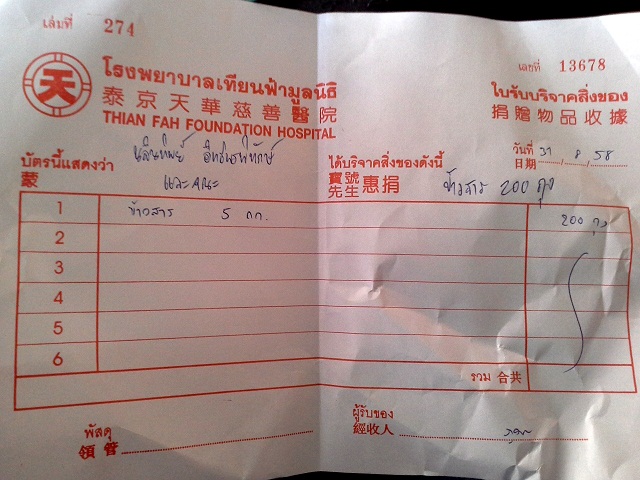 เล่มที่ 274
เลขที่ 13678
天
โรงพยาบาลเทียนฟ้ามูลนิธิ
泰京天華慈善醫院
THIAN FAH FOUNDATION HOSPITAL
ใบรับบริจาคสิ่งของ
捐贈物品收據
วันที่ 31 / 8 / 58
日期
บัตรนี้แสดงว่า
蒙
และคณะ
ได้บริจาคสิ่งของดังนี้
寶號
先生 惠捐 ข้าวสาร 200 ถุง
1 ข้าวสาร 5 กก. 200 ถุง
2
3
4
5
6
รวม 合共
พัสดุ
領管
ผู้รับของ
經收人